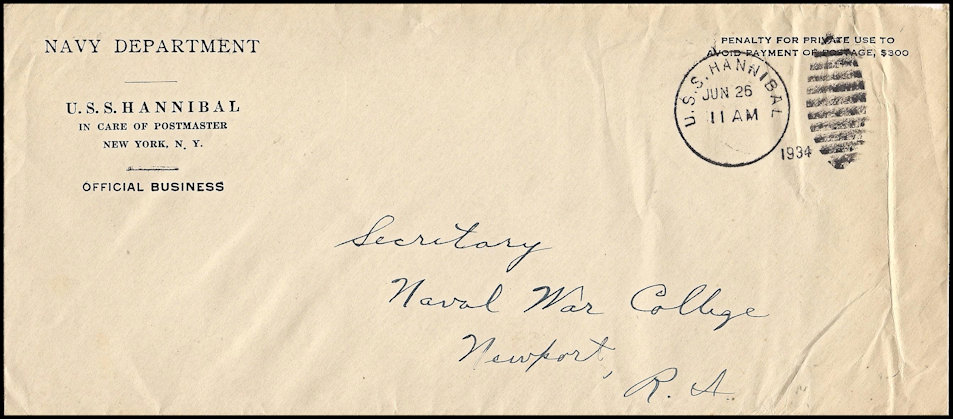 NAVY DEPARTMENT
U.S.S. HANNIBAL
IN CARE OF POSTMASTER
NEW YORK, N. Y.
OFFICIAL BUSINESS
PENALTY FOR PRIVATE USE TO
AVOID PAYMENT OF POSTAGE, $300
U.S.S. HANNIBAL
JUN 26
11 AM
1934
Secretary
Naval War College
Newport,
R. I.